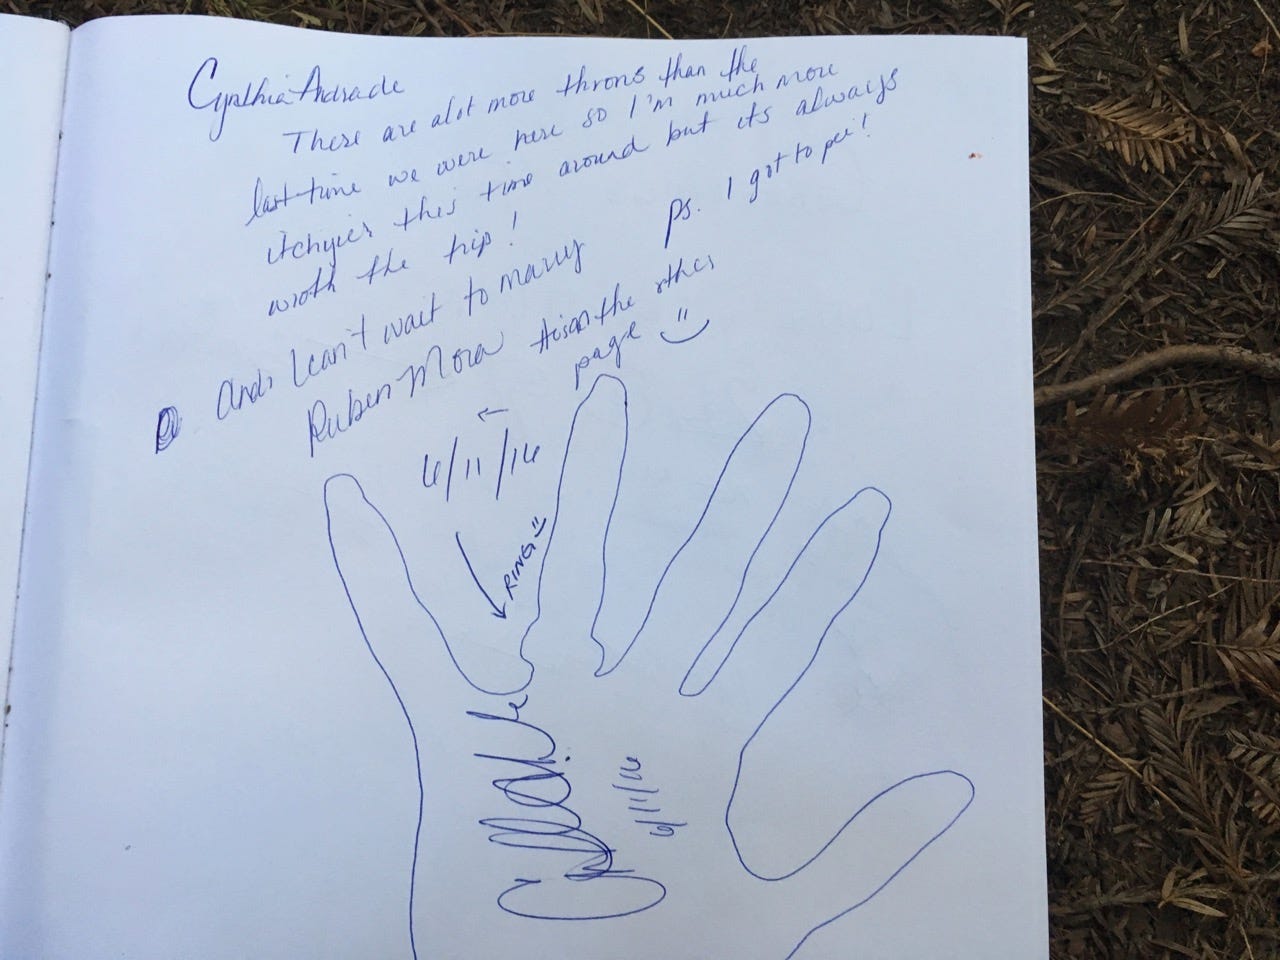 Cynthia Andrade
There are alot more throns than the
last time we were here so I'm much more
itchyier this time around but its always
wroth the trip!
ps. I got to pee!
And I can't wait to marry
Ruben Mora his on the other
page
6/11/16
RING
6/11/16